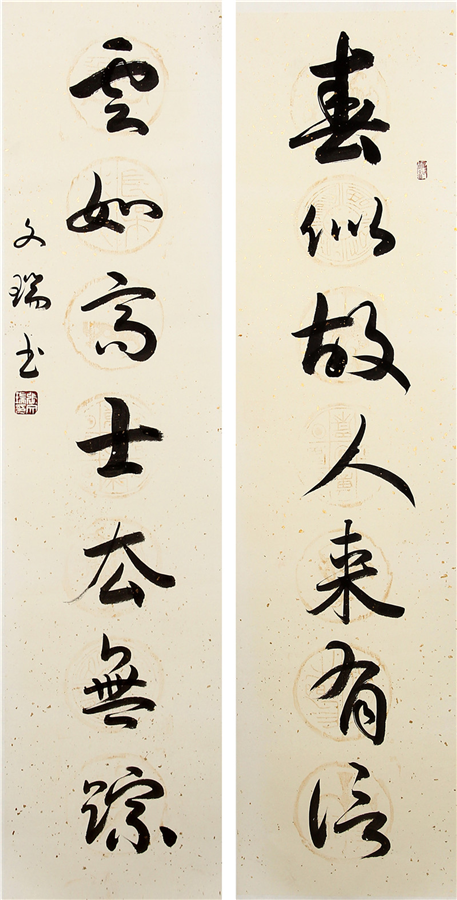 春似故人来有信
雲如高士去無踪
文瑞书